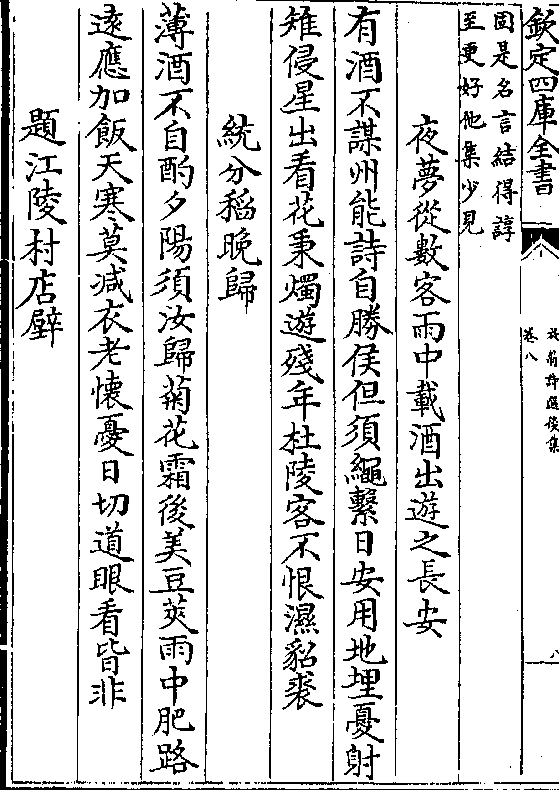 欽定四庫全書
放翁詩選後集
卷八
八
固是名言結得諄
至更好他集少見
夜夢從數客雨中載酒出遊之長安
有酒不謀州能詩自勝侯但須繩繫日安用地埋憂射
雉侵星出看花秉燭遊殘年杜陵客不恨濕貂裘
統分稻晚歸
薄酒不自酌夕陽須汝歸菊花霜後美豆莢雨中肥路
遠應加飯天寒莫減衣老懷憂日切道眼看皆非
題江陵村店壁